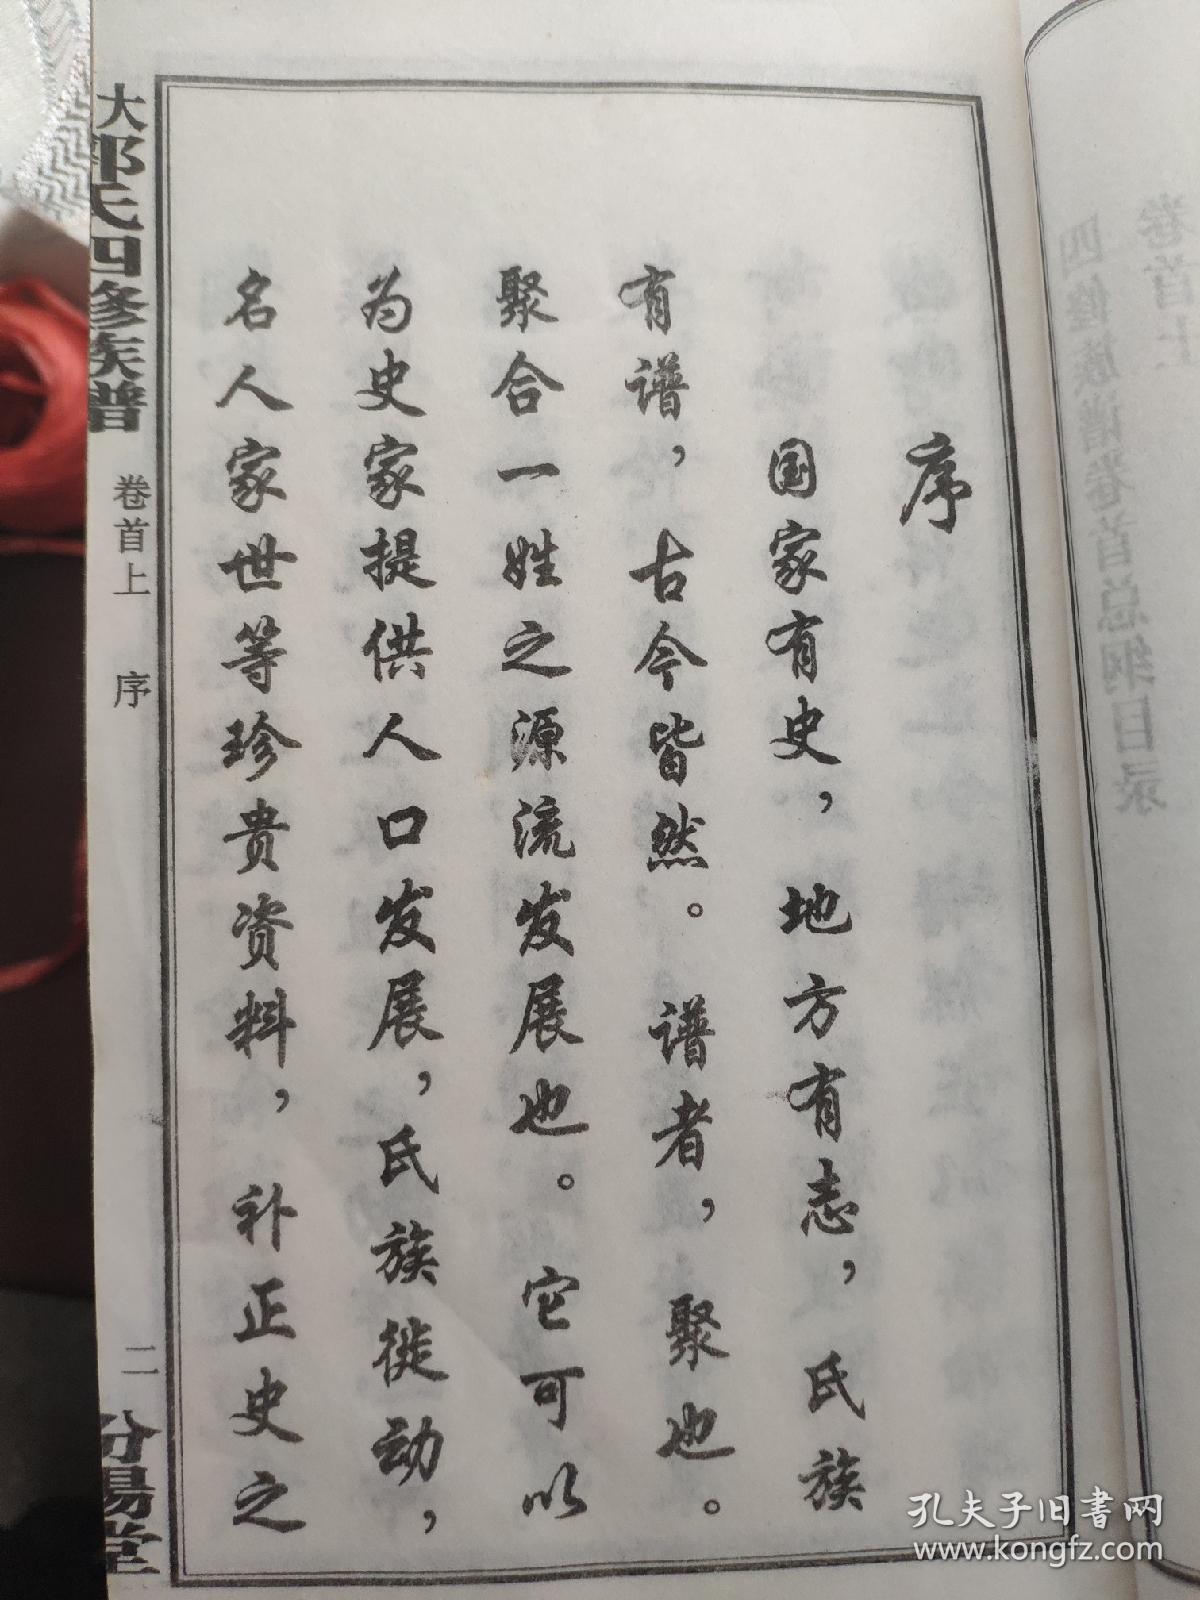 序
国家有史，地方有志，氏族
有谱，古今皆然。谱者，聚也。
聚合一姓之源流发展也。它可以
为史家提供人口发展，氏族徙动，
名人家世等珍贵资料，补正史之
大郭氏四修族谱
卷首上 序
二
汾阳堂
卷首上
四修族谱卷首总纲目录
孔夫子旧书网
www.kongfz.com